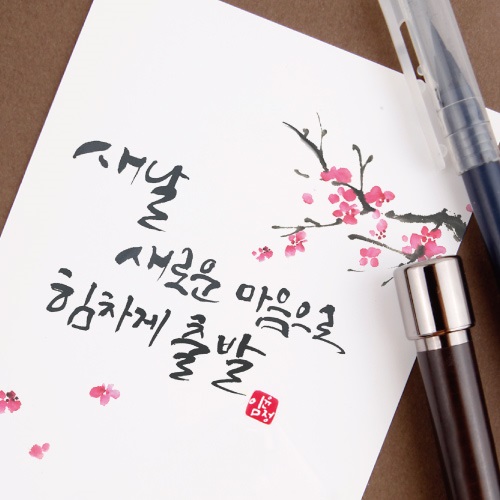 새날
새로운 마음으로
힘차게 출발